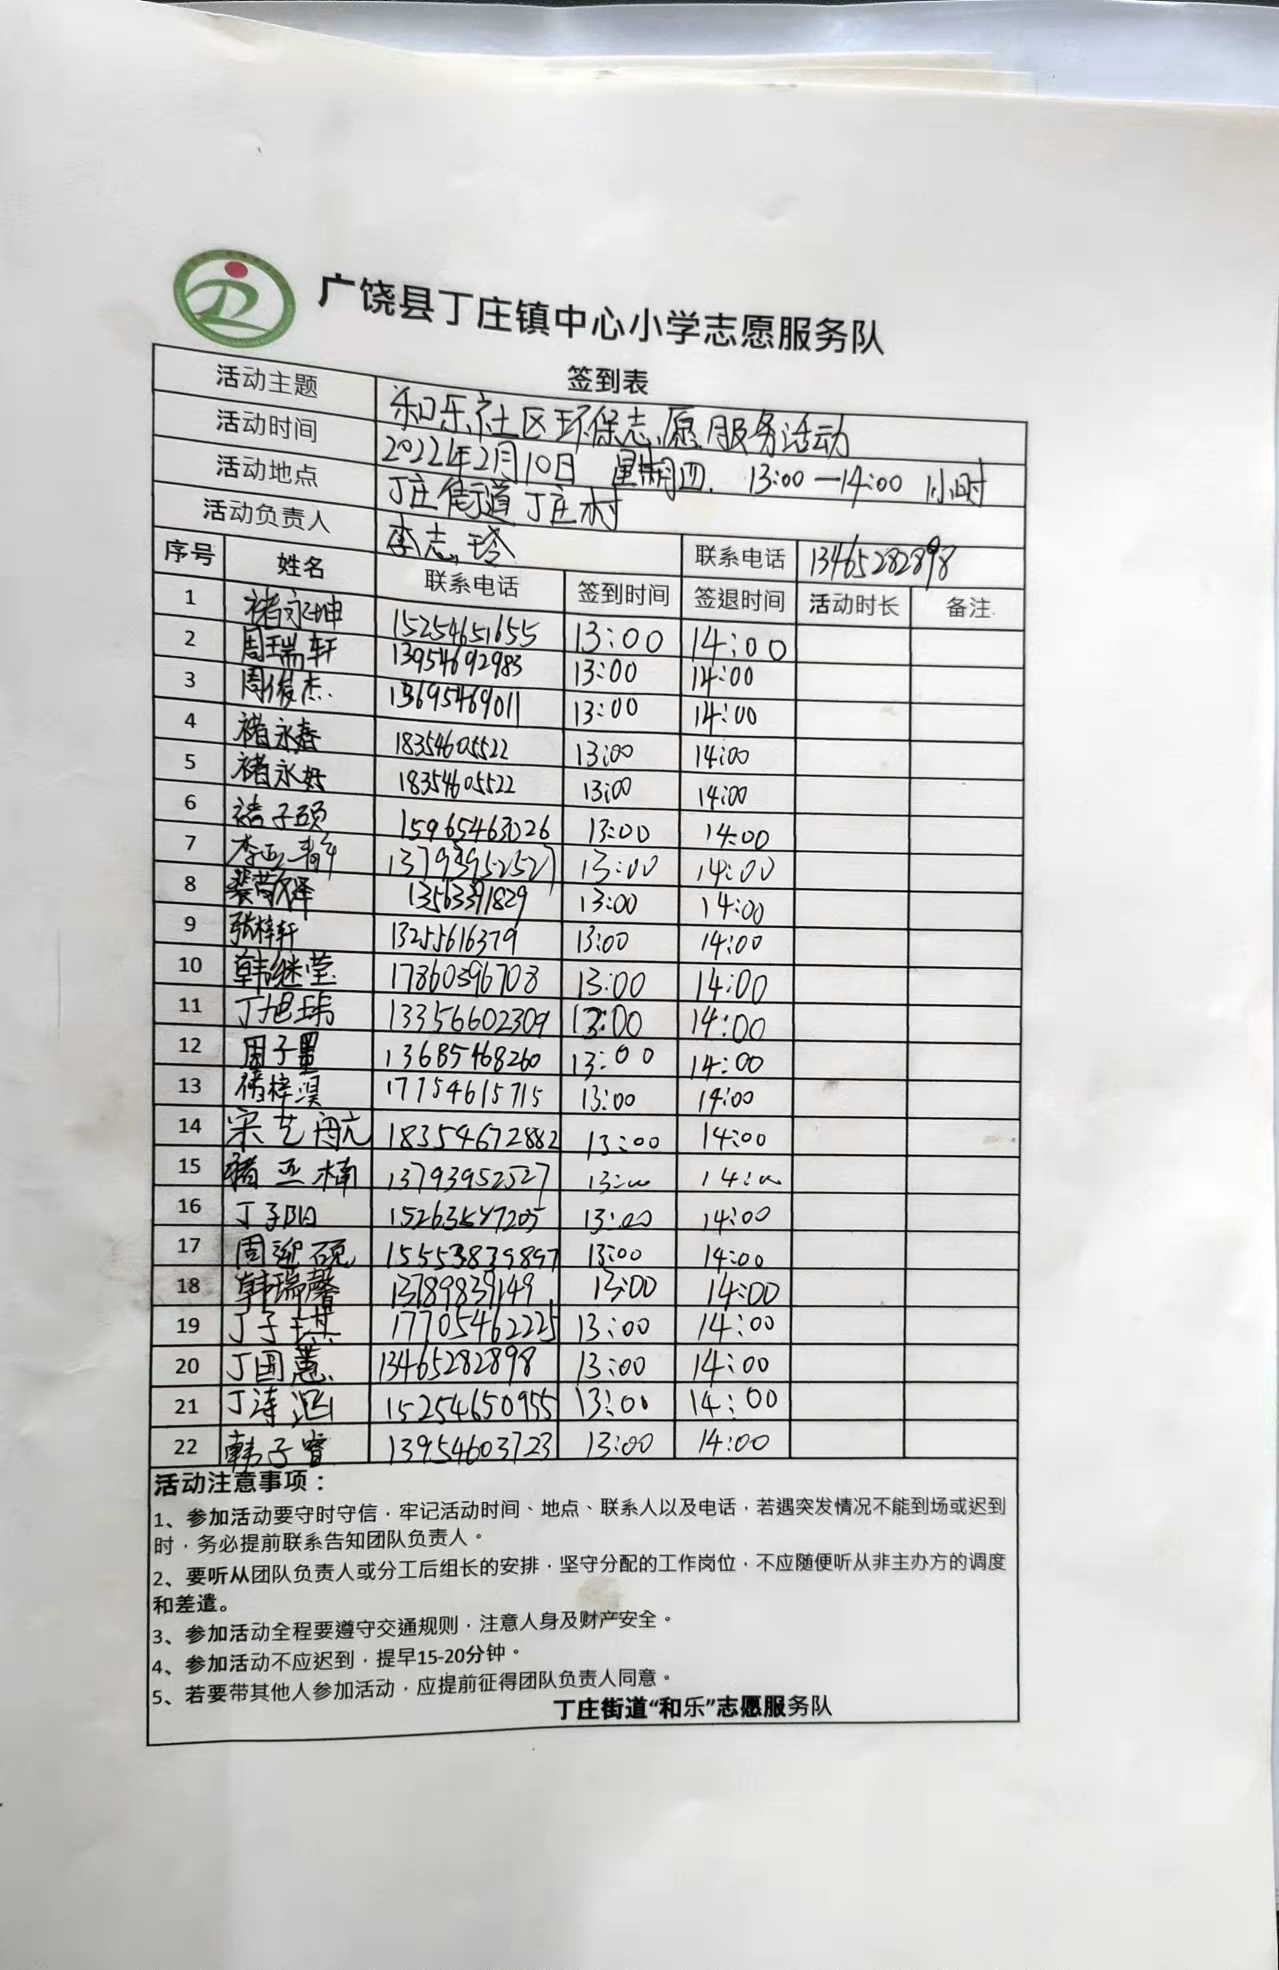 广饶县丁庄镇中心小学志愿服务队
签到表
活动主题 和乐社区环保志愿服务活动
活动时间 2022年2月10日 星期四. 13:00—14:00 1小时
活动地点 丁庄街道丁庄村
活动负责人 李志玲 联系电话 13465282898
序号 姓名 联系电话 签到时间 签退时间 活动时长 备注.
1 褚永坤 15254651655 13:00 14:00
2 周瑞轩 13954692983 13:00 14:00
3 周俊杰. 13695469011 13:00 14:00
4 褚永春 18354605522 13:00 14:00
5 褚永 18354605522 13:00 14:00
6 褚子硕 15965463026 13:00 14:00
7 李亚 13793952527 13:00 14:00
8 13563391829 13:00 14:00
9 张梓轩 13255616379 13:00 14:00
10 韩继莹 17860396708 13:00 14:00
11 丁旭玮 13356602309 13:00 14:00
12 周子量 13685468260 13:00 14:00
13 褚梓淏 17754615715 13:00 14:00
14 宋艺航 18354672882 13:00 14:00
15 褚亚楠 13793952527 13:00 14:00
16 丁子阳 15263547205 13:00 14:00
17 周迎砚 15553839897 13:00 14:00
18 韩瑞馨 13789839149 13:00 14:00
19 丁子琪 17705462225 13:00 14:00
20 丁国蕙 13465282898 13:00 14:00
21 丁涛涵 15254650955 13:00 14:00
22 韩子睿 13954603723 13:00 14:00
活动注意事项：
1、参加活动要守时守信，牢记活动时间、地点、联系人以及电话，若遇突发情况不能到场或迟到
时，务必提前联系告知团队负责人。
2、要听从团队负责人或分工后组长的安排，坚守分配的工作岗位，不应随便听从非主办方的调度
和差遣。
3、参加活动全程要遵守交通规则，注意人身及财产安全。
4、参加活动不应迟到，提早15-20分钟。
5、若要带其他人参加活动，应提前征得团队负责人同意。
丁庄街道“和乐”志愿服务队